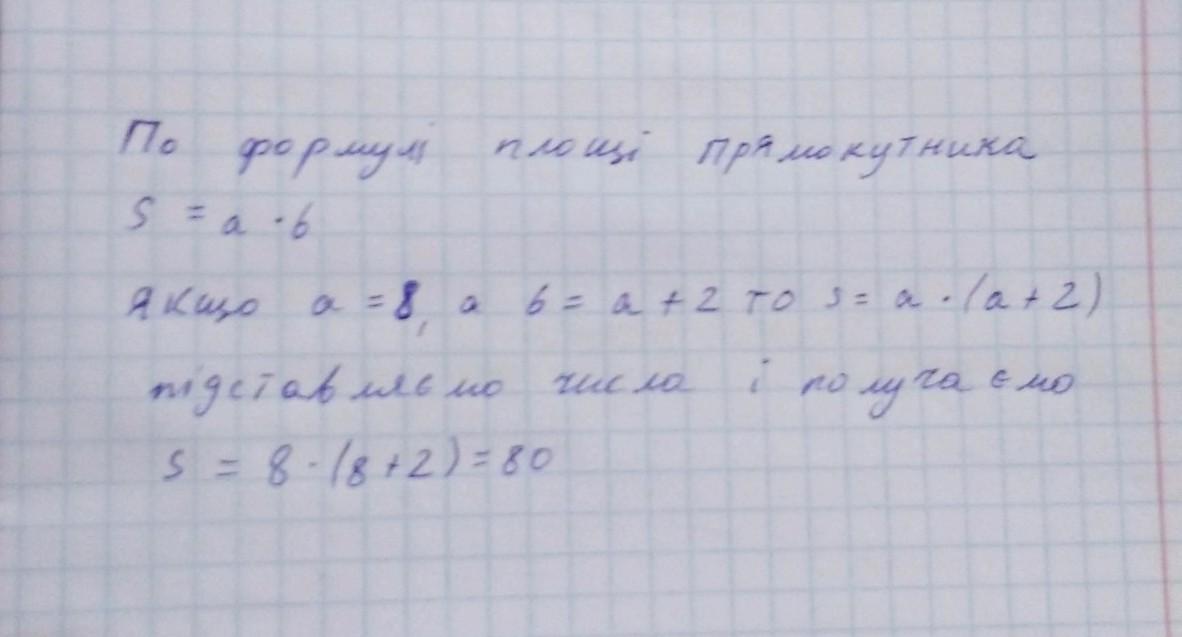 По формулі площі прямокутника
S = a · b
Якщо a = 8, а b = a + 2 то s = a · (a + 2)
підставляємо числа і получаємо
s = 8 · (8 + 2) = 80